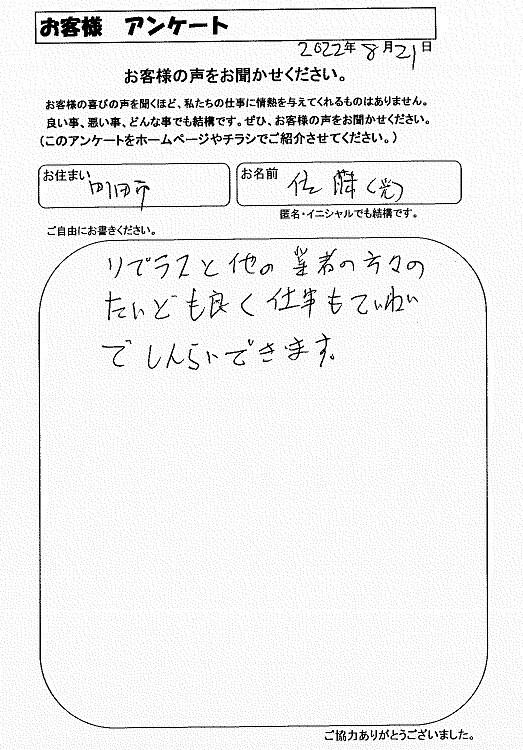 お客様 アンケート
2022年8月21日
お客様の声をお聞かせください。
お客様の喜びの声を聞くほど、私たちの仕事に情熱を与えてくれるものはありません。
良い事、悪い事、どんな事でも結構です。ぜひ、お客様の声をお聞かせください。
(このアンケートをホームページやチラシでご紹介させてください。)
お住まい 町田市
お名前 佐藤(光)
匿名・イニシャルでも結構です。
ご自由にお書きください。
リプラスと他の業者の方々の
たいども良く仕事もていねい
でしんらいできます。
ご協力ありがとうございました。